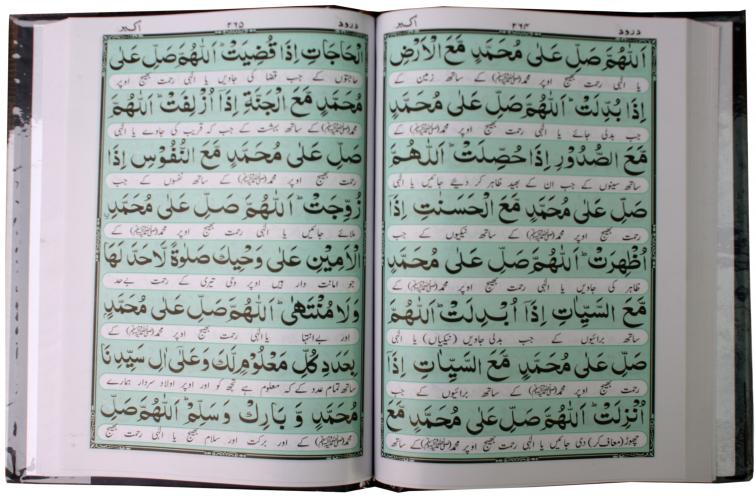 درود ۲۶۴ اکبر
اَللّٰهُمَّ صَلِّ عَلٰى مُحَمَّدٍ مَّعَ الْاَرْضِ
یا الٰہی رحمت بھیج اوپر محمد(ﷺ) کے ساتھ زمین کے
اِذَا بُدِّلَتْ اَللّٰهُمَّ صَلِّ عَلٰى مُحَمَّدٍ
جب بدلی جائے یا الٰہی رحمت بھیج اوپر محمد(ﷺ) کے
مَّعَ الصُّدُوْرِ اِذَا حُصِّلَتْ اَللّٰهُمَّ
ساتھ سینوں کے جب ان کے بھید ظاہر کر دیئے جائیں یا الٰہی
صَلِّ عَلٰى مُحَمَّدٍ مَّعَ الْحَسَنٰتِ اِذَا
رحمت بھیج اوپر محمد(ﷺ) کے ساتھ نیکیوں کے جب
اُظْهِرَتْ اَللّٰهُمَّ صَلِّ عَلٰى مُحَمَّدٍ
ظاہر کی جاویں یا الٰہی رحمت بھیج اوپر محمد(ﷺ) کے
مَّعَ السَّيِّاٰتِ اِذَا اُبْدِلَتْ اَللّٰهُمَّ
ساتھ برائیوں کے جب بدلی جاویں (نیکیاں) یا الٰہی
صَلِّ عَلٰى مُحَمَّدٍ مَّعَ السَّيِّاٰتِ اِذَا
رحمت بھیج اوپر محمد(ﷺ) کے ساتھ برائیوں کے جب
اُنْزِلَتْ اَللّٰهُمَّ صَلِّ عَلٰى مُحَمَّدٍ مَّعَ
چھوڑ (معاف کر) دی جائیں یا الٰہی رحمت بھیج اوپر محمد(ﷺ) کے ساتھ
درود ۲۶۵ اکبر
الْحَاجَاتِ اِذَا قُضِيَتْ اَللّٰهُمَّ صَلِّ عَلٰى
حاجتوں کے جب قضا کی جاویں یا الٰہی رحمت بھیج اوپر
مُحَمَّدٍ مَّعَ الْجَنَّةِ اِذَا اُزْلِفَتْ اَللّٰهُمَّ
محمد(ﷺ) کے ساتھ بہشت کے جب کہ قریب کی جاوے یا الٰہی
صَلِّ عَلٰى مُحَمَّدٍ مَّعَ النُّفُوْسِ اِذَا
رحمت بھیج اوپر محمد(ﷺ) کے ساتھ نفسوں کے جب
زُوِّجَتْ اَللّٰهُمَّ صَلِّ عَلٰى مُحَمَّدِ
ملائے جائیں یا الٰہی رحمت بھیج اوپر محمد(ﷺ) کے
الْاَمِيْنِ عَلٰى وَحْيِكَ صَلٰوةً لَّاحَدَّ لَهَا
جو امانت دار ہیں اوپر وحی تیری کے رحمت بےحد
وَلَا مُنْتَهٰى اَللّٰهُمَّ صَلِّ عَلٰى مُحَمَّدٍ
اور بےانتہا یا الٰہی رحمت بھیج اوپر محمد(ﷺ) کے
بِعَدَدِ كُلِّ مَعْلُوْمٍ لَّكَ وَعَلٰى اٰلِ سَيِّدِنَا
ساتھ تمام عدد کے کہ معلوم ہے تجھ کو اور اوپر اولاد سردار ہمارے
مُحَمَّدٍ وَّ بَارِكْ وَسَلِّمْ اَللّٰهُمَّ صَلِّ
محمد(ﷺ) کے اور برکت اور سلام بھیج یا الٰہی رحمت بھیج